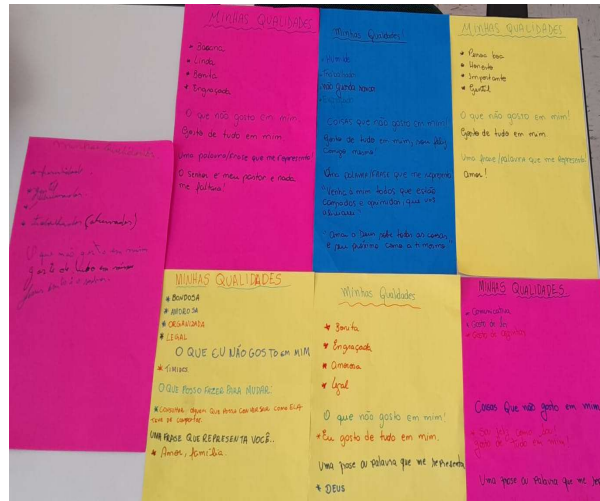 MINHAS QUALIDADES
* Bacana
* Linda
* Bonita
* Engraçada
O que não gosto em mim
Gosto de tudo em mim.
Uma palavra/frase que me representa!
O Senhor é meu pastor e nada
me faltara!
Minhas Qualidades!
Humilde
não guardo rancor
Coisas que não gosto em mim
Gosto de tudo em mim,
Uma palavra/FRASE que me representa
"Venha a mim todos que estão
cansados e oprimidos, que vos
aliviarei"
"Amar a Deus sobre todas as coisas
e seu próximo como a ti mesmo
MINHAS QUALIDADES
* Pessoa boa
* Honesto
* Importante
* Gentil
O que não gosto em mim!
Gosto de tudo em mim.
Uma frase/palavra que me representa
Amor!
Minhas Qualidades
O que não gosto em mim
gosto de tudo em mim
MINHAS QUALIDADES
* BONDOSA
* AMOROSA
* ORGANIZADA
* LEGAL
O QUE EU NÃO GOSTO EM MIM
* TIMIDEZ
O QUE POSSO FAZER PARA MUDAR:
UMA FRASE QUE REPRESENTA VOCÊ..
* Amor, família.
Minhas Qualidades
* Bonita
* Engraçada
* Amorosa
* Legal
O que não gosto em mim!
* Eu gosto de tudo em mim.
Uma frase ou palavra que me representa
* DEUS
MINHAS QUALIDADES
* Comunicativa
* Gosto de ler
Coisas Que não gosto em mim
Gosto de tudo em mim!
Uma frase ou Palavra que me